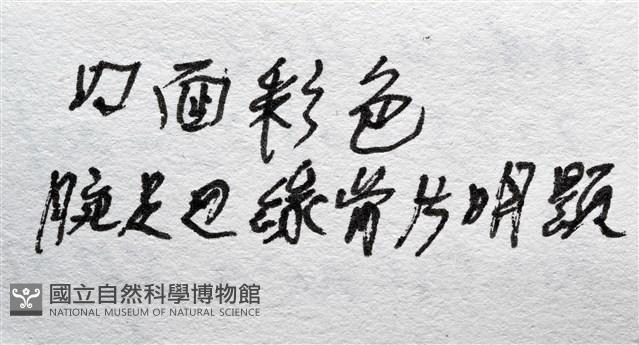 口面彩色
腕足边緣骨片明顯
國立自然科學博物館
NATIONAL MUSEUM OF NATURAL SCIENCE